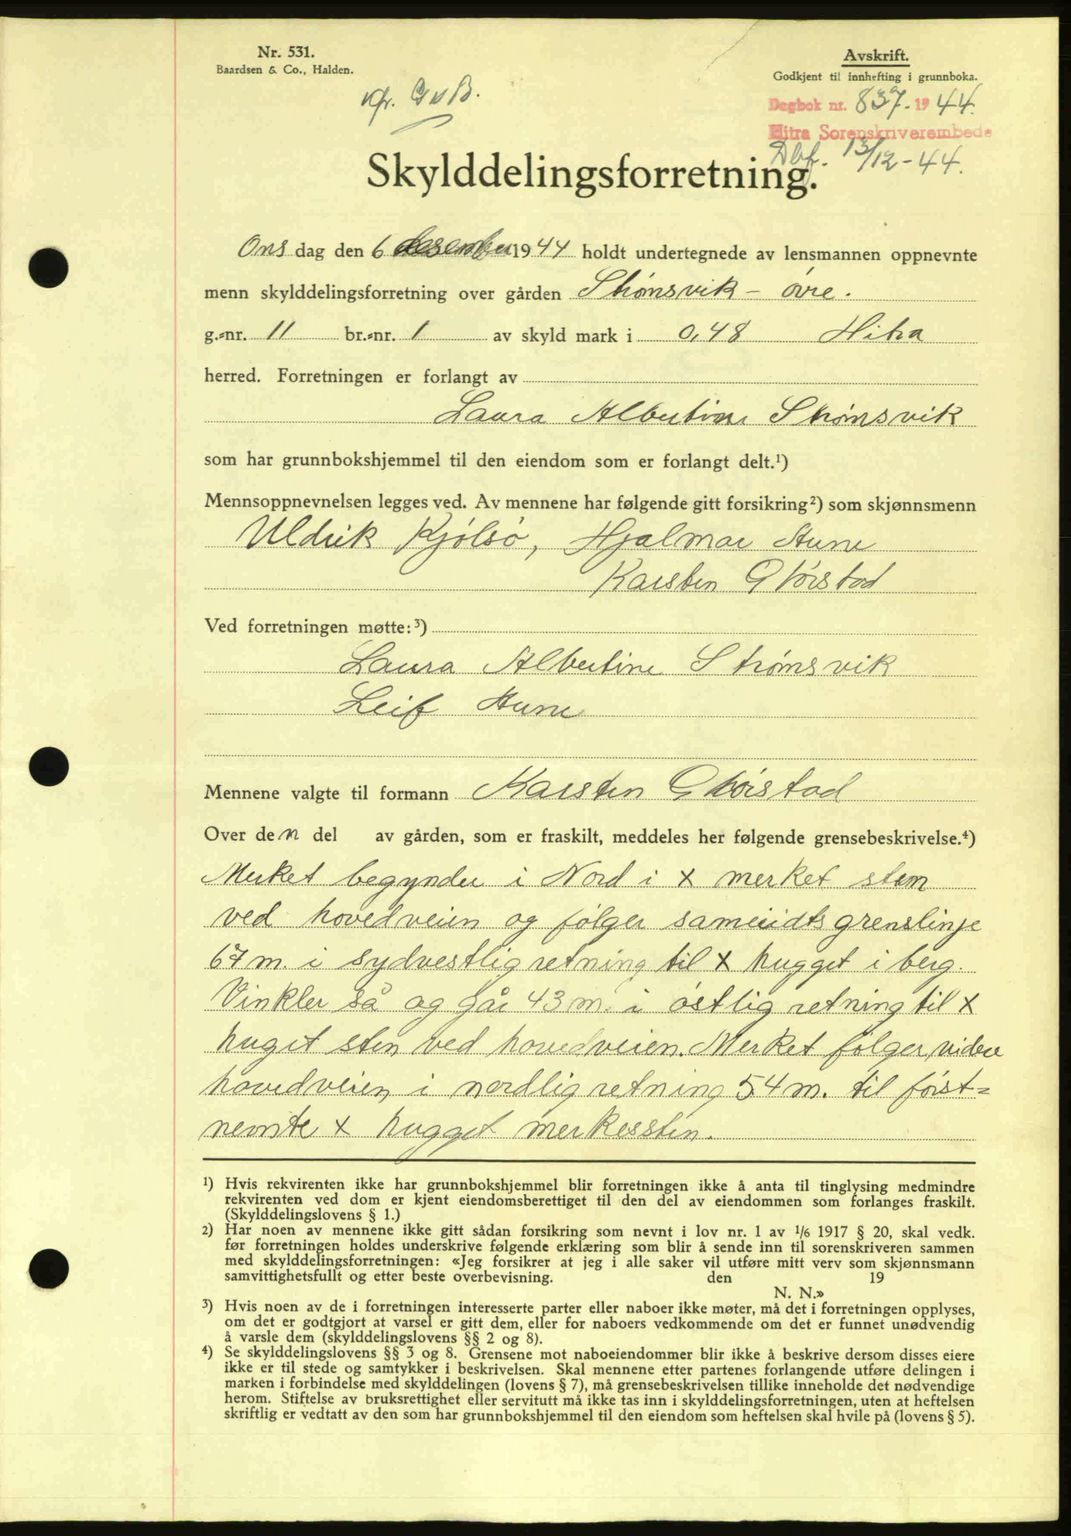 Nr. 531.
Baardsen & Co., Halden.
Avskrift.
Godkjent til innhefting i grunnboka.
Dagbok nr. 837. 1944.
Hitra Sorenskriverembede
Dbf. 13/12-44.
Skylddelingsforretning.
Onsdag den 6 desember 1944 holdt undertegnede av lensmannen oppnevnte
menn skylddelingsforretning over gården Strömsvik - övre.
g.-nr. 11 br.-nr. 1 av skyld mark i 0,48 Hitra
herred. Forretningen er forlangt av
Laura Albertine Strömsvik
som har grunnbokshjemmel til den eiendom som er forlangt delt.¹)
Mennsoppnevnelsen legges ved. Av mennene har følgende gitt forsikring²) som skjønnsmenn
Uldrik Kjölsö, Hjalmar Aune
Karsten Glörstad
Ved forretningen møtte:³)
Laura Albertine Strömsvik
Leif Aune
Mennene valgte til formann Karsten Glörstad
Over den del av gården, som er fraskilt, meddeles her følgende grensebeskrivelse.⁴)
Merket begynder i Nord i x merket sten
ved hovedveien og følger grenslinje
67 m. i sydvestlig retning til x hugget i berg.
Vinkler så og går 43 m. i østlig retning til x
huget sten ved hovedveien. Merket følger videre
hovedveien i nordlig retning 54 m. til først-
nevnte x hugget merkessten.
¹) Hvis rekvirenten ikke har grunnbokshjemmel blir forretningen ikke å anta til tinglysing medmindre
rekvirenten ved dom er kjent eiendomsberettiget til den del av eiendommen som forlanges fraskilt.
(Skylddelingslovens § 1.)
²) Har noen av mennene ikke gitt sådan forsikring som nevnt i lov nr. 1 av 1/6 1917 § 20, skal vedk.
før forretningen holdes underskrive følgende erklæring som blir å sende inn til sorenskriveren sammen
med skylddelingsforretningen: «Jeg forsikrer at jeg i alle saker vil utføre mitt verv som skjønnsmann
samvittighetsfullt og etter beste overbevisning. den 19
N. N.»
³) Hvis noen av de i forretningen interesserte parter eller naboer ikke møter, må det i forretningen opplyses,
om det er godtgjort at varsel er gitt dem, eller for naboers vedkommende om det er funnet unødvendig
å varsle dem (skylddelingslovens §§ 2 og 8).
⁴) Se skylddelingslovens §§ 3 og 8. Grensene mot naboeiendommer blir ikke å beskrive dersom disses eiere
ikke er til stede og samtykker i beskrivelsen. Skal mennene etter partenes forlangende utføre delingen i
marken i forbindelse med skylddelingen (lovens § 7), må grensebeskrivelsen tillike inneholde det nødvendige
herom. Stiftelse av bruksrettighet eller servitutt må ikke tas inn i skylddelingsforretningen, uten at heftelsen
skriftlig er vedtatt av den som har grunnbokshjemmel til den eiendom som heftelsen skal hvile på (lovens § 5).